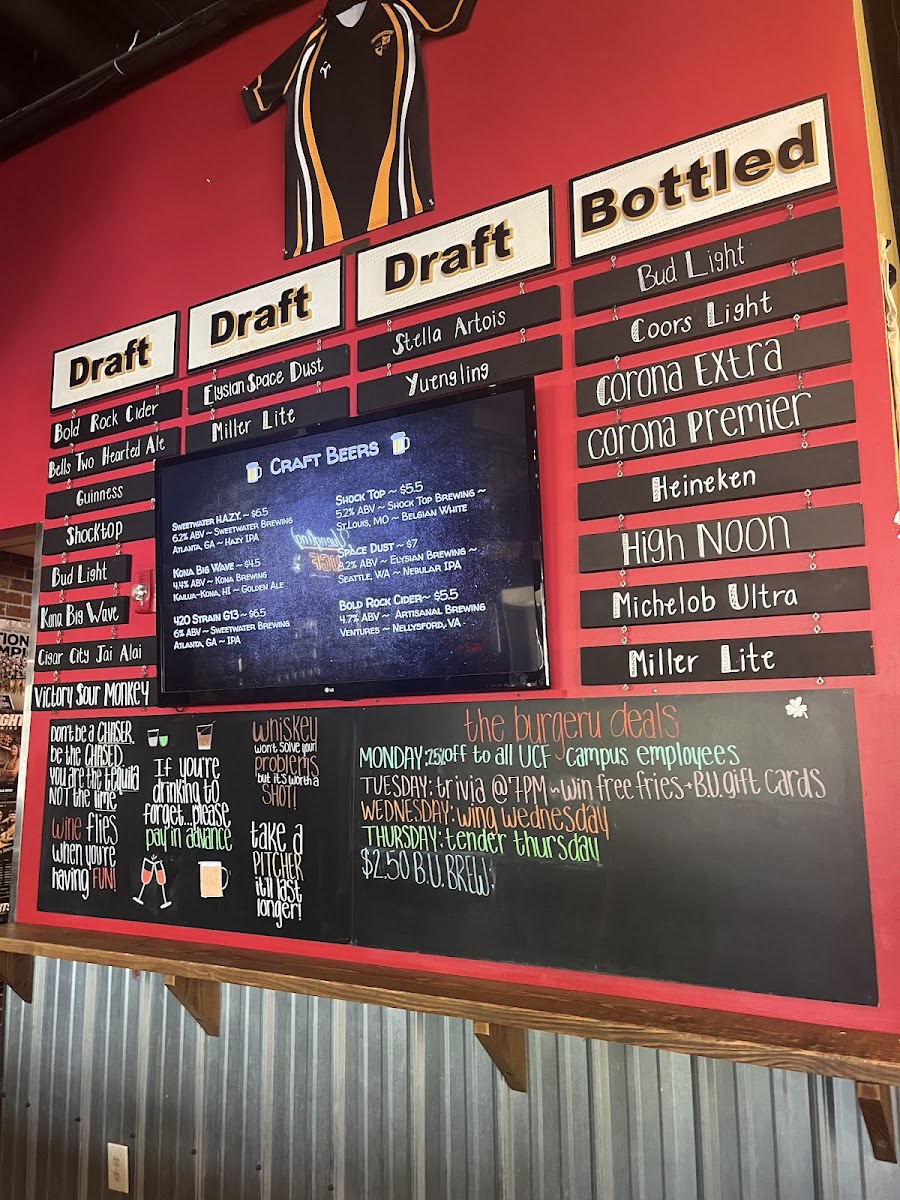 Draft
Bold Rock Cider
Bells Two Hearted Ale
Guinness
Shocktop
Bud Light
Kona Big Wave
Cigar City Jai Alai
Victory Sour Monkey
Draft
Elysian Space Dust
Miller Lite
Draft
Stella Artois
Yuengling
Bottled
Bud Light
Coors Light
Corona Extra
Corona Premier
Heineken
High Noon
Michelob Ultra
Miller Lite
Craft Beers
Sweetwater H.A.Z.Y. ~ $6.5
6.2% ABV ~ Sweetwater Brewing
Atlanta, GA ~ Hazy IPA
Kona Big Wave ~ $4.5
4.4% ABV ~ Kona Brewing
Kailua-Kona, HI ~ Golden Ale
420 Strain G13 ~ $6.5
6% ABV ~ Sweetwater Brewing
Atlanta, GA ~ IPA
Shock Top ~ $5.5
5.2% ABV ~ Shock Top Brewing ~
St.Louis, MO ~ Belgian White
Space Dust ~ $7
8.2% ABV ~ Elysian Brewing ~
Seattle, WA ~ Nebular IPA
Bold Rock Cider~ $5.5
4.7% ABV ~ Artisanal Brewing
Ventures ~ Nellysford, VA
Yuengling
UCF
LG
Don't be a CHASER,
be the CHASED.
you are the tequila
NOT the lime
wine flies
when you're
having FUN!
If you're
drinking to
forget...please
pay in advance
whiskey
won't solve your
problems
but it's worth a
SHOT!
take a
PITCHER
it'll last
longer!
the burgeru deals
MONDAY: 25% off to all UCF campus employees
TUESDAY: trivia @ 7PM ~ win free fries + B.U. gift cards
WEDNESDAY: wing wednesday
THURSDAY: tender thursday
$2.50 B.U. BREW